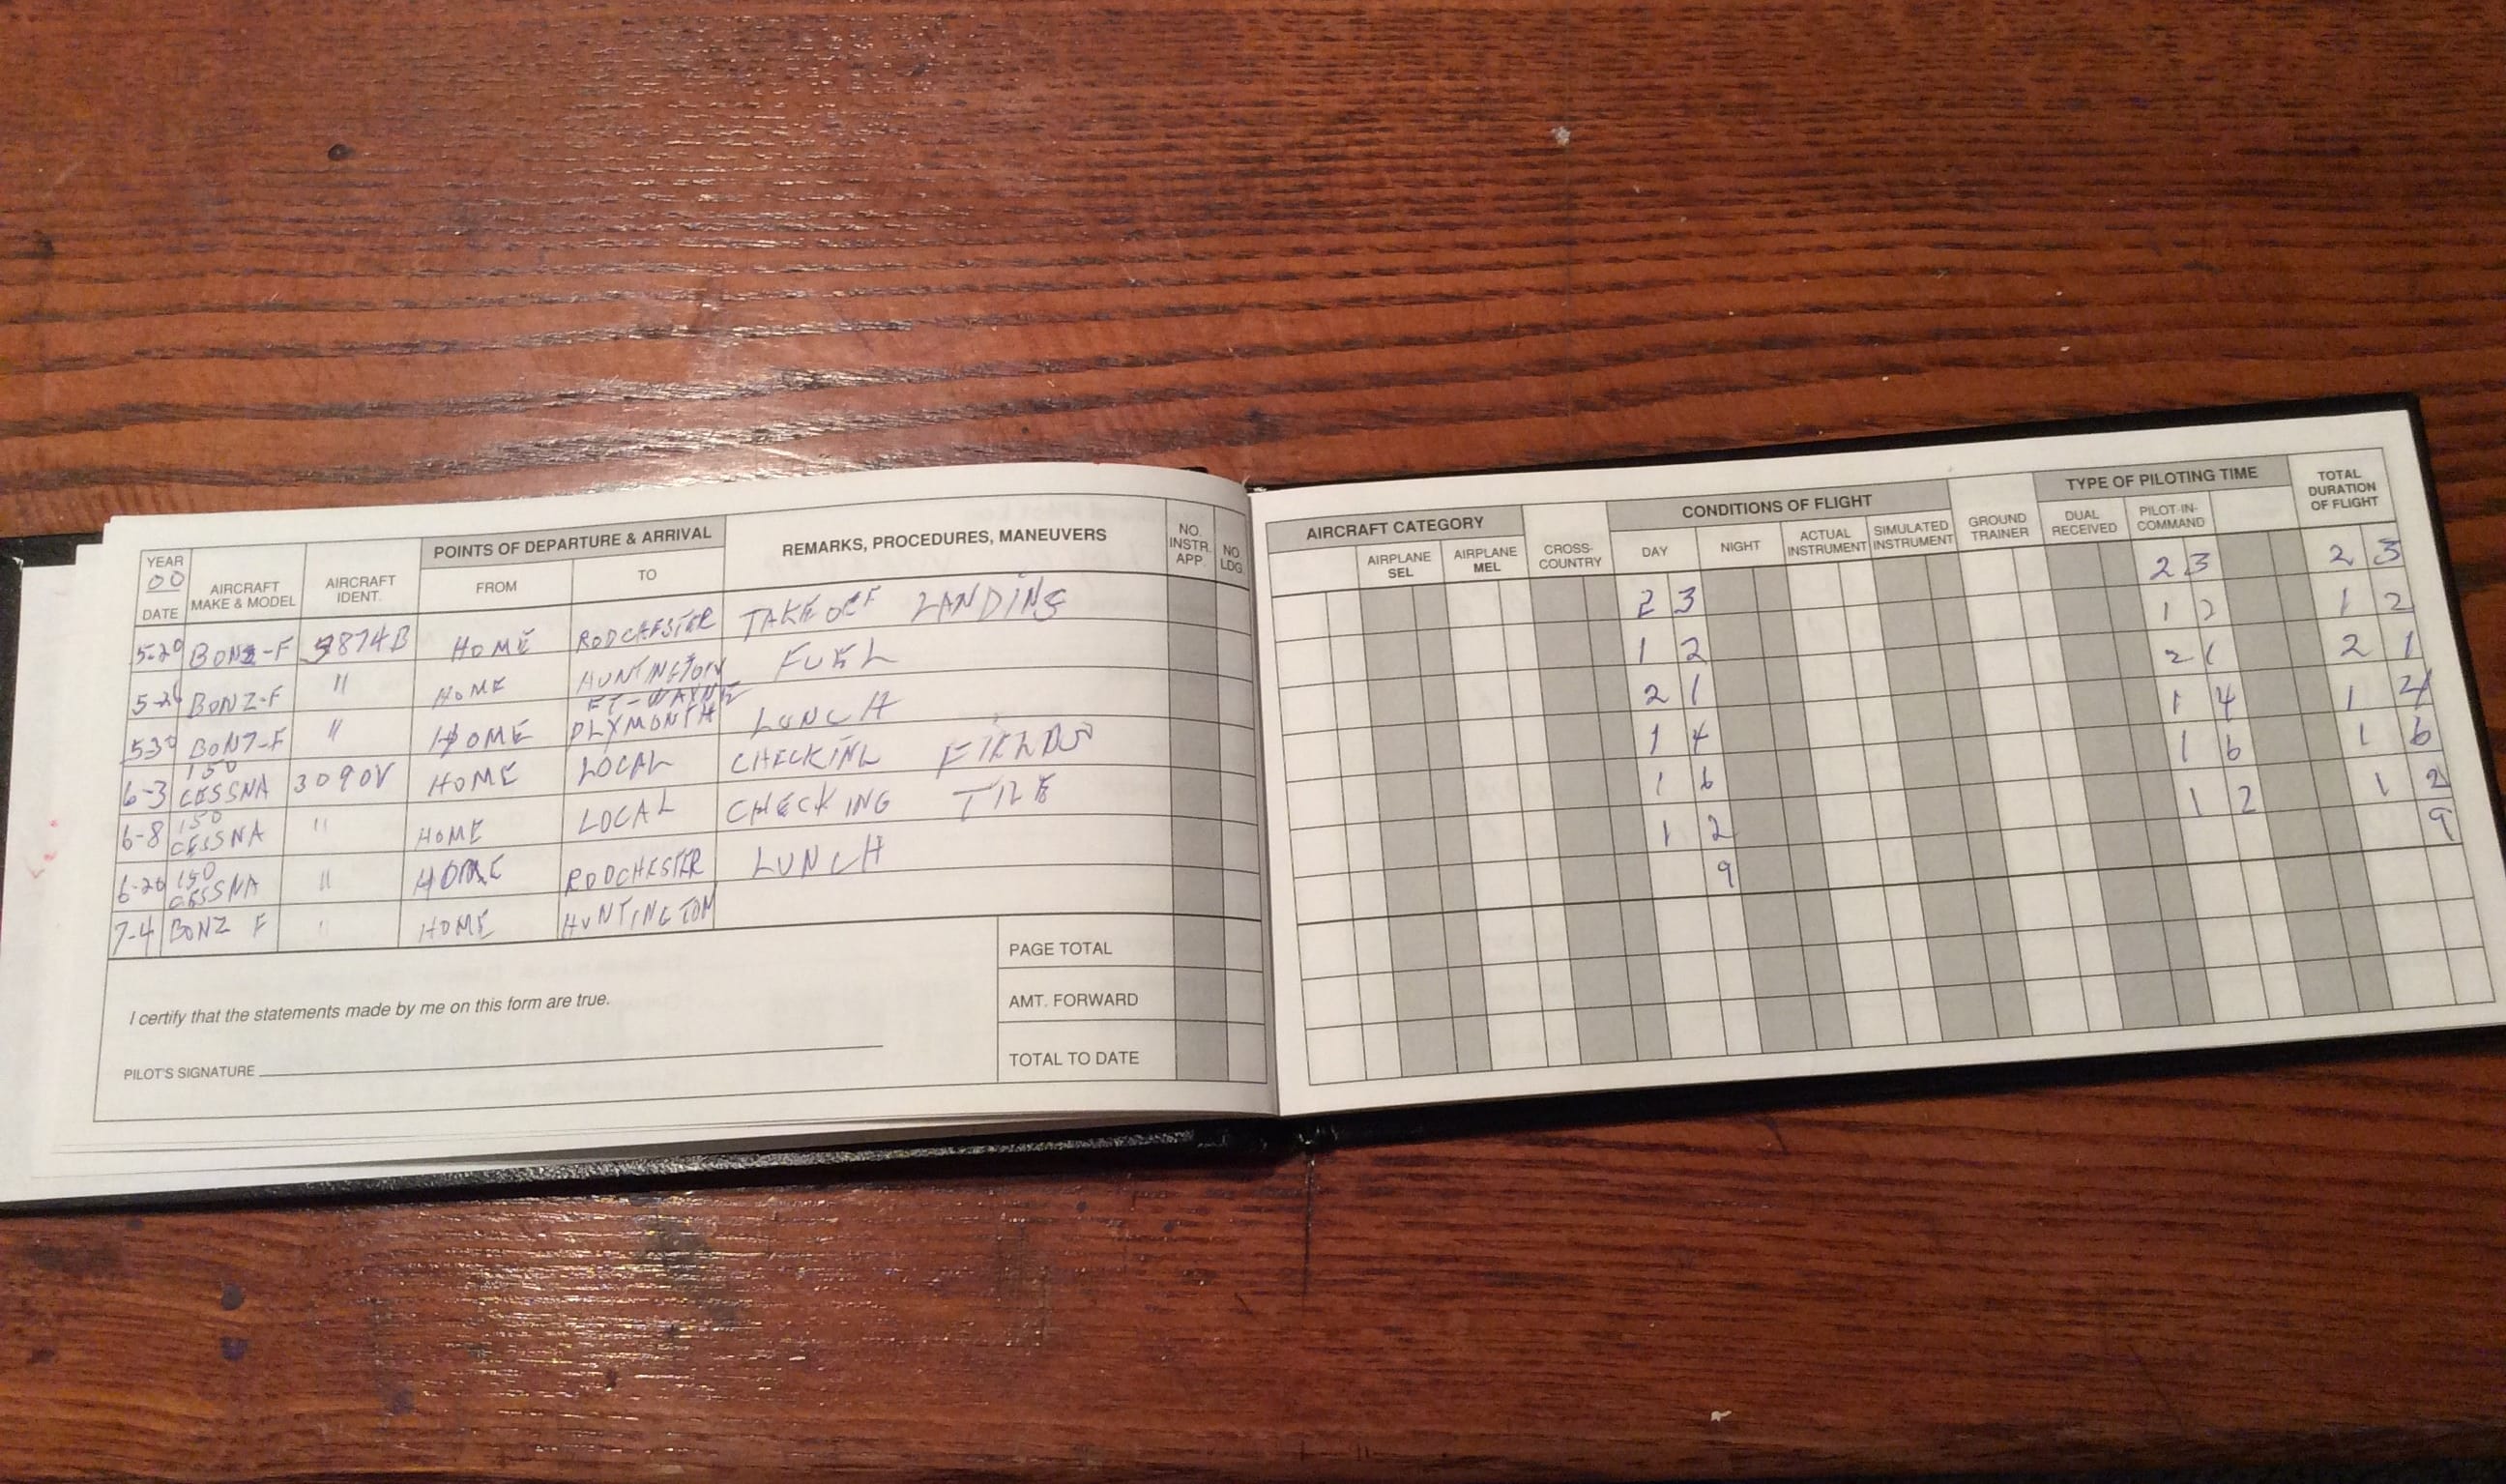 YEAR
00
DATE
AIRCRAFT
MAKE & MODEL
AIRCRAFT
IDENT.
POINTS OF DEPARTURE & ARRIVAL
FROM
TO
REMARKS, PROCEDURES, MANEUVERS
NO.
INSTR.
APP.
NO.
LDG.
5-20 BONZ-F 9874B HOME RODCHESTER TAKE OFF LANDING
5-26 BONZ-F " HOME HUNTINGTON FUEL
FT-WAYNE
5-30 BONZ-F " HOME PLYMONTH LUNCH
150
6-3 CESSNA 3090V HOME LOCAL CHECKING FIELDS
150
6-8 CESSNA " HOME LOCAL CHECKING TILE
150
6-26 CESSNA " HOME RODCHESTER LUNCH
7-4 BONZ F " HOME HUNTINGTON
PAGE TOTAL
AMT. FORWARD
TOTAL TO DATE
I certify that the statements made by me on this form are true.
PILOT'S SIGNATURE
AIRCRAFT CATEGORY
AIRPLANE
SEL
AIRPLANE
MEL
CROSS-
COUNTRY
CONDITIONS OF FLIGHT
DAY
NIGHT
ACTUAL
INSTRUMENT
SIMULATED
INSTRUMENT
GROUND
TRAINER
TYPE OF PILOTING TIME
DUAL
RECEIVED
PILOT-IN-
COMMAND
TOTAL
DURATION
OF FLIGHT
2 3 2 3 2 3
1 2 1 2 1 2
2 1 2 1 2 1
1 4 1 4 1 4
1 6 1 6 1 6
1 2 1 2 1 2
9 9